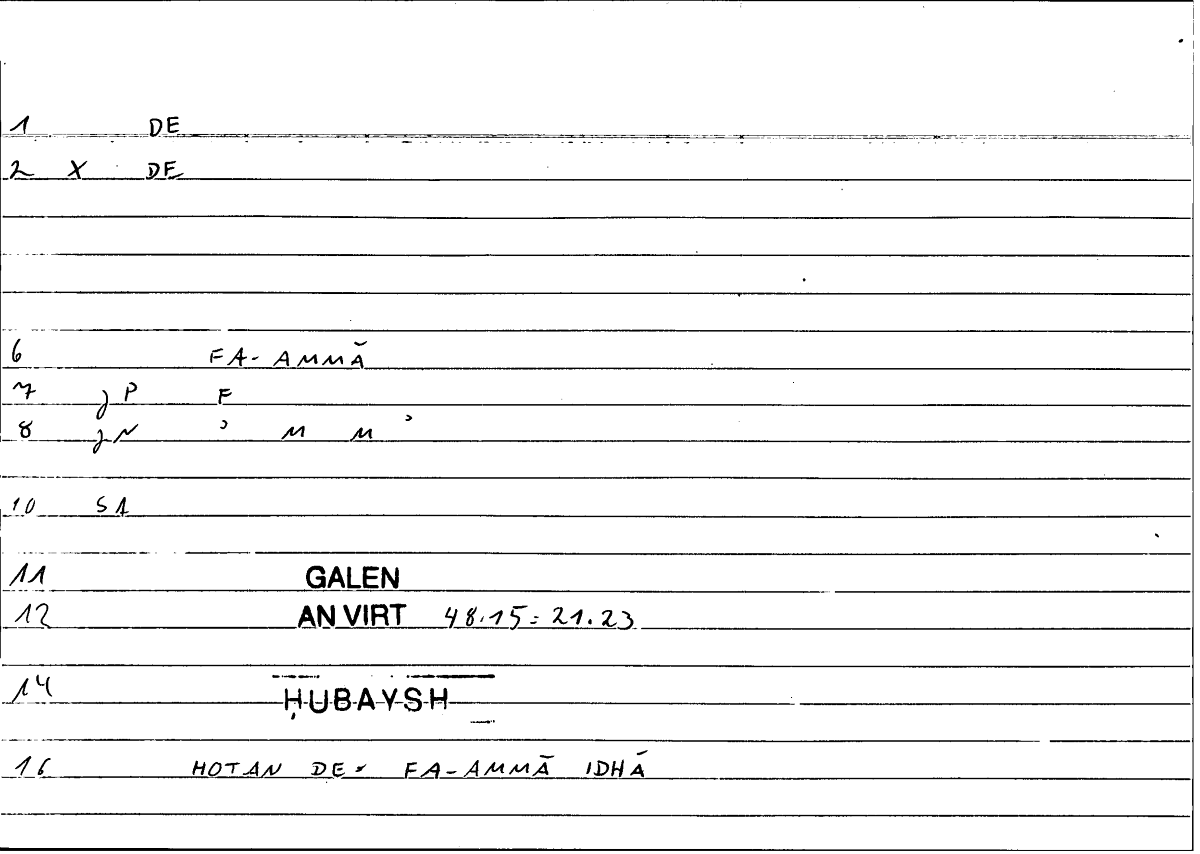 1 DE
2 X DE
6 FA-AMMĀ
7 JP F
8 JN ʾ M M ʾ
10 SA
11 GALEN
12 AN VIRT 48.15 = 21.23
14 ḤUBAYSH
16 HOTAN DE = FA-AMMĀ IDHĀ